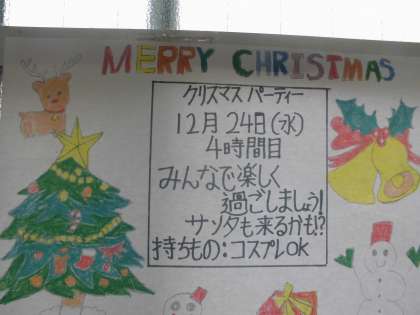 MERRY CHRISTMAS
クリスマスパーティー
12月24日(水)
4時間目
みんなで楽しく
過ごしましょう!
サンタも来るかも!?
持ちもの:コスプレOK